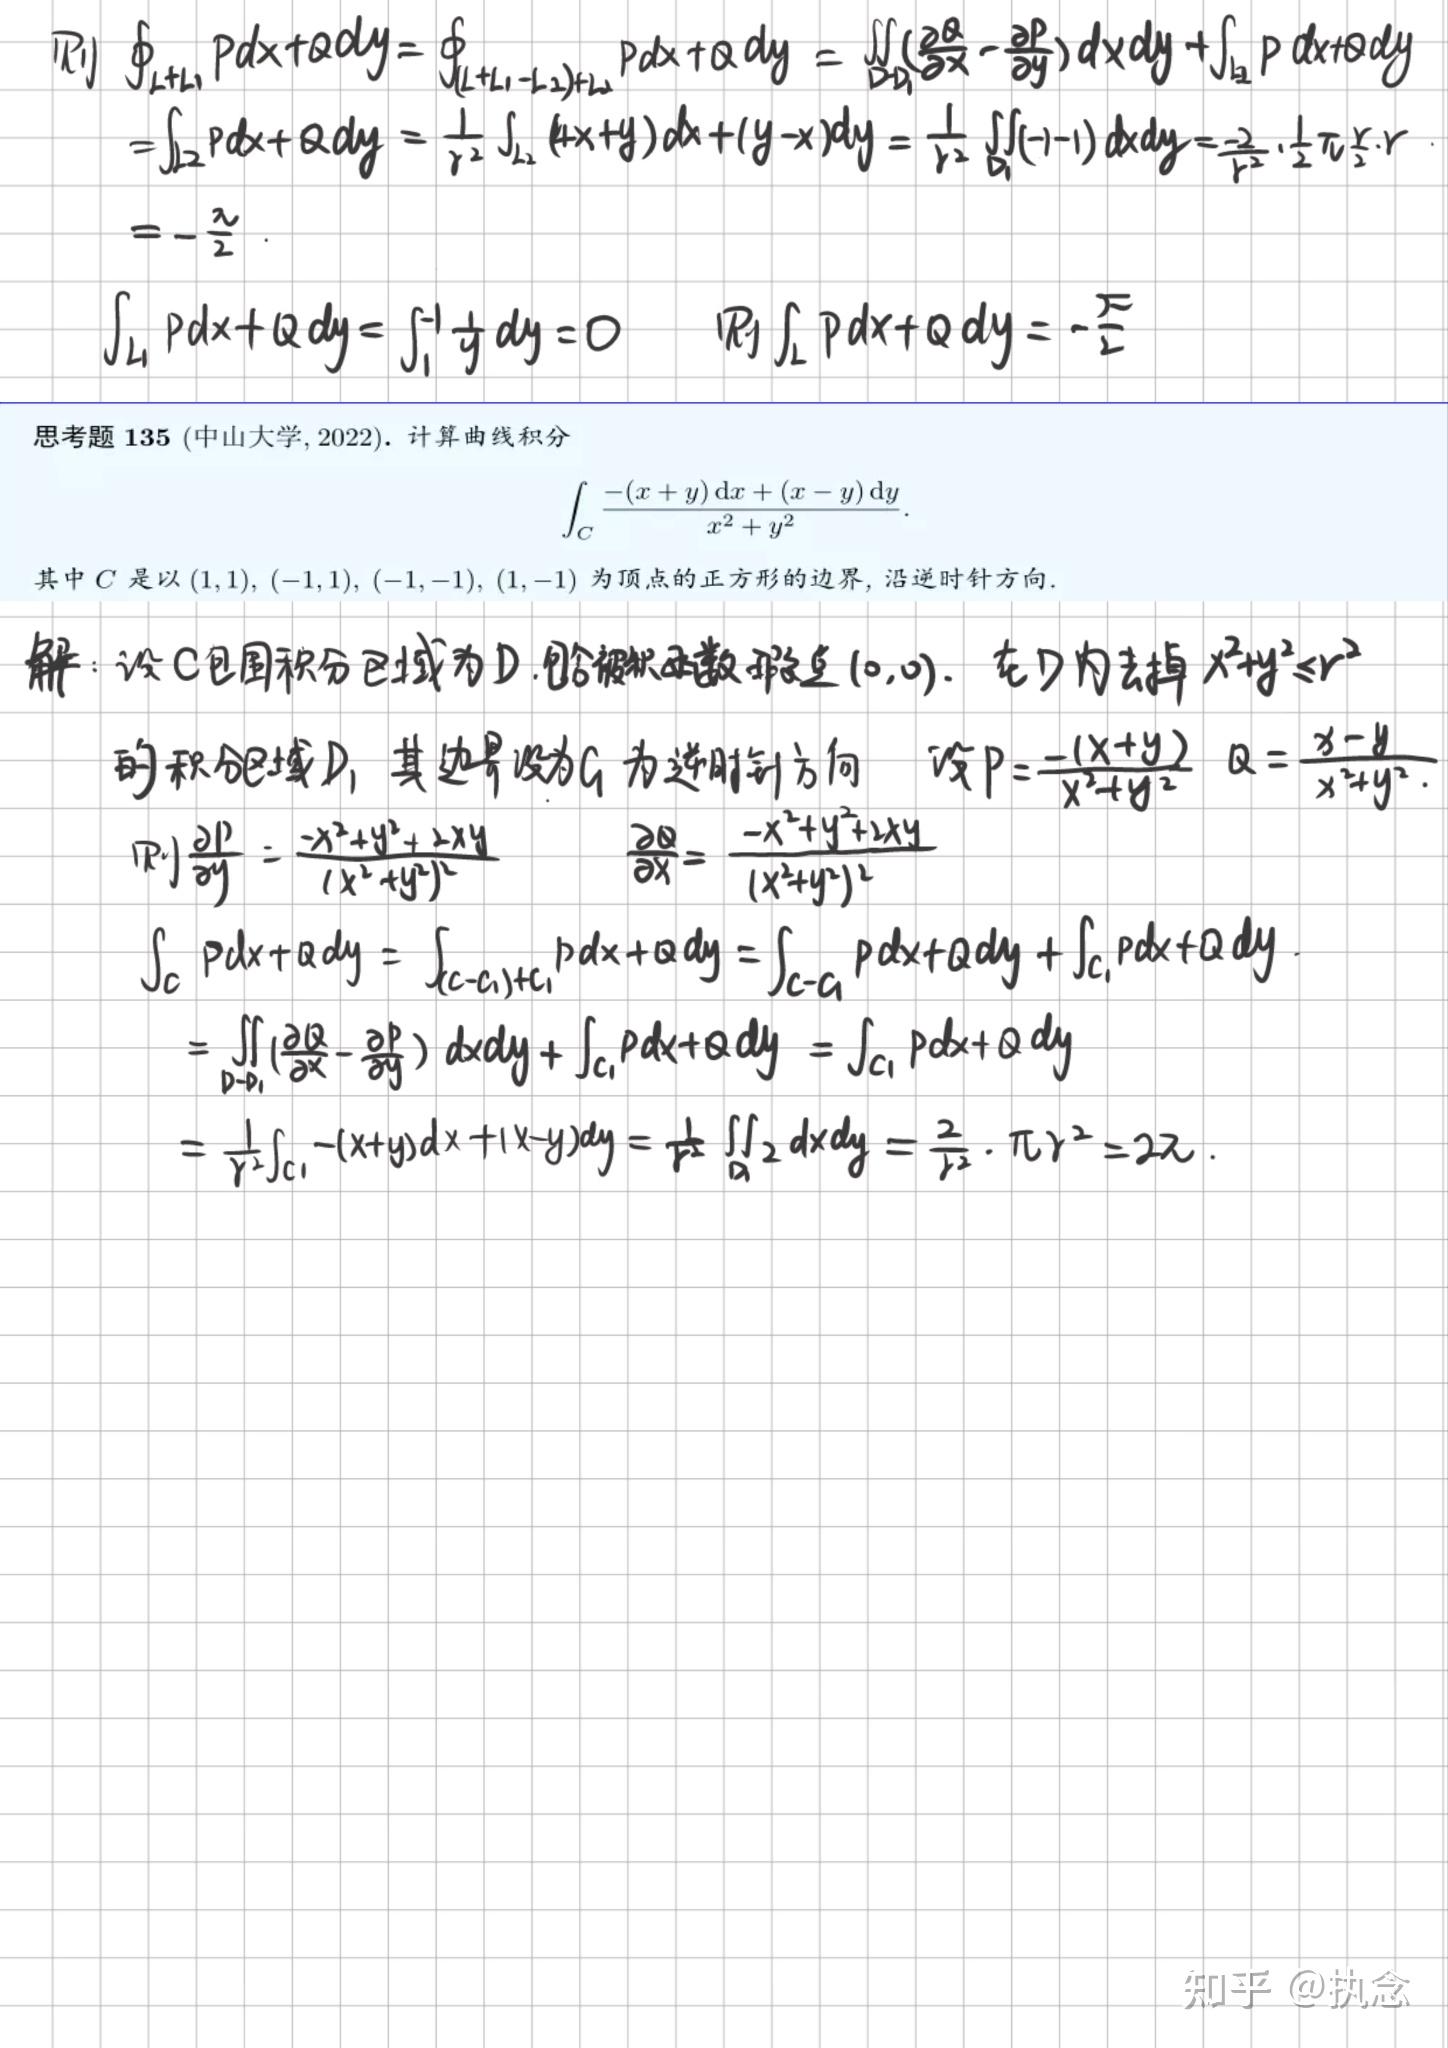 则 ∮_{L+L₁} Pdx+Qdy = ∮_{(L+L₁-L₂)+L₂} Pdx+Qdy = ∬_{D-D₁} (∂Q/∂x - ∂P/∂y) dxdy + ∫_{L₂} Pdx+Qdy
= ∫_{L₂} Pdx+Qdy = 1/r² ∫_{L₂} (4x+y)dx+(y-x)dy = 1/r² ∬_{D₁} (-1-1) dxdy = -2/r² · 1/2 π r/2 · r
= -π/2 .
∫_{L₁} Pdx+Qdy = ∫_1^{-1} 1/y dy = 0 则 ∫_L Pdx+Qdy = -π/2
思考题 135 (中山大学, 2022). 计算曲线积分
∫_C (-(x + y) dx + (x - y) dy)/(x² + y²).
其中 C 是以 (1,1), (-1,1), (-1,-1), (1,-1) 为顶点的正方形的边界, 沿逆时针方向.
解: 设C包围积分区域为D.包含被积函数瑕点(0,0). 在D内去掉 x²+y²≤r²
的积分区域D₁ 其边界设为C₁ 为逆时针方向 设P=-(x+y)/(x²+y²) Q=(x-y)/(x²+y²).
则 ∂P/∂y = (-x²+y²+2xy)/(x²+y²)² ∂Q/∂x = (-x²+y²+2xy)/(x²+y²)²
∫_C Pdx+Qdy = ∫_{(C-C₁)+C₁} Pdx+Qdy = ∫_{C-C₁} Pdx+Qdy + ∫_{C₁} Pdx+Qdy.
= ∬_{D-D₁} (∂Q/∂x - ∂P/∂y) dxdy + ∫_{C₁} Pdx+Qdy = ∫_{C₁} Pdx+Qdy
= 1/r² ∫_{C₁} -(x+y)dx+(x-y)dy = 1/r² ∬_{D₁} 2 dxdy = 2/r² · πr² = 2π.
知乎 @执念